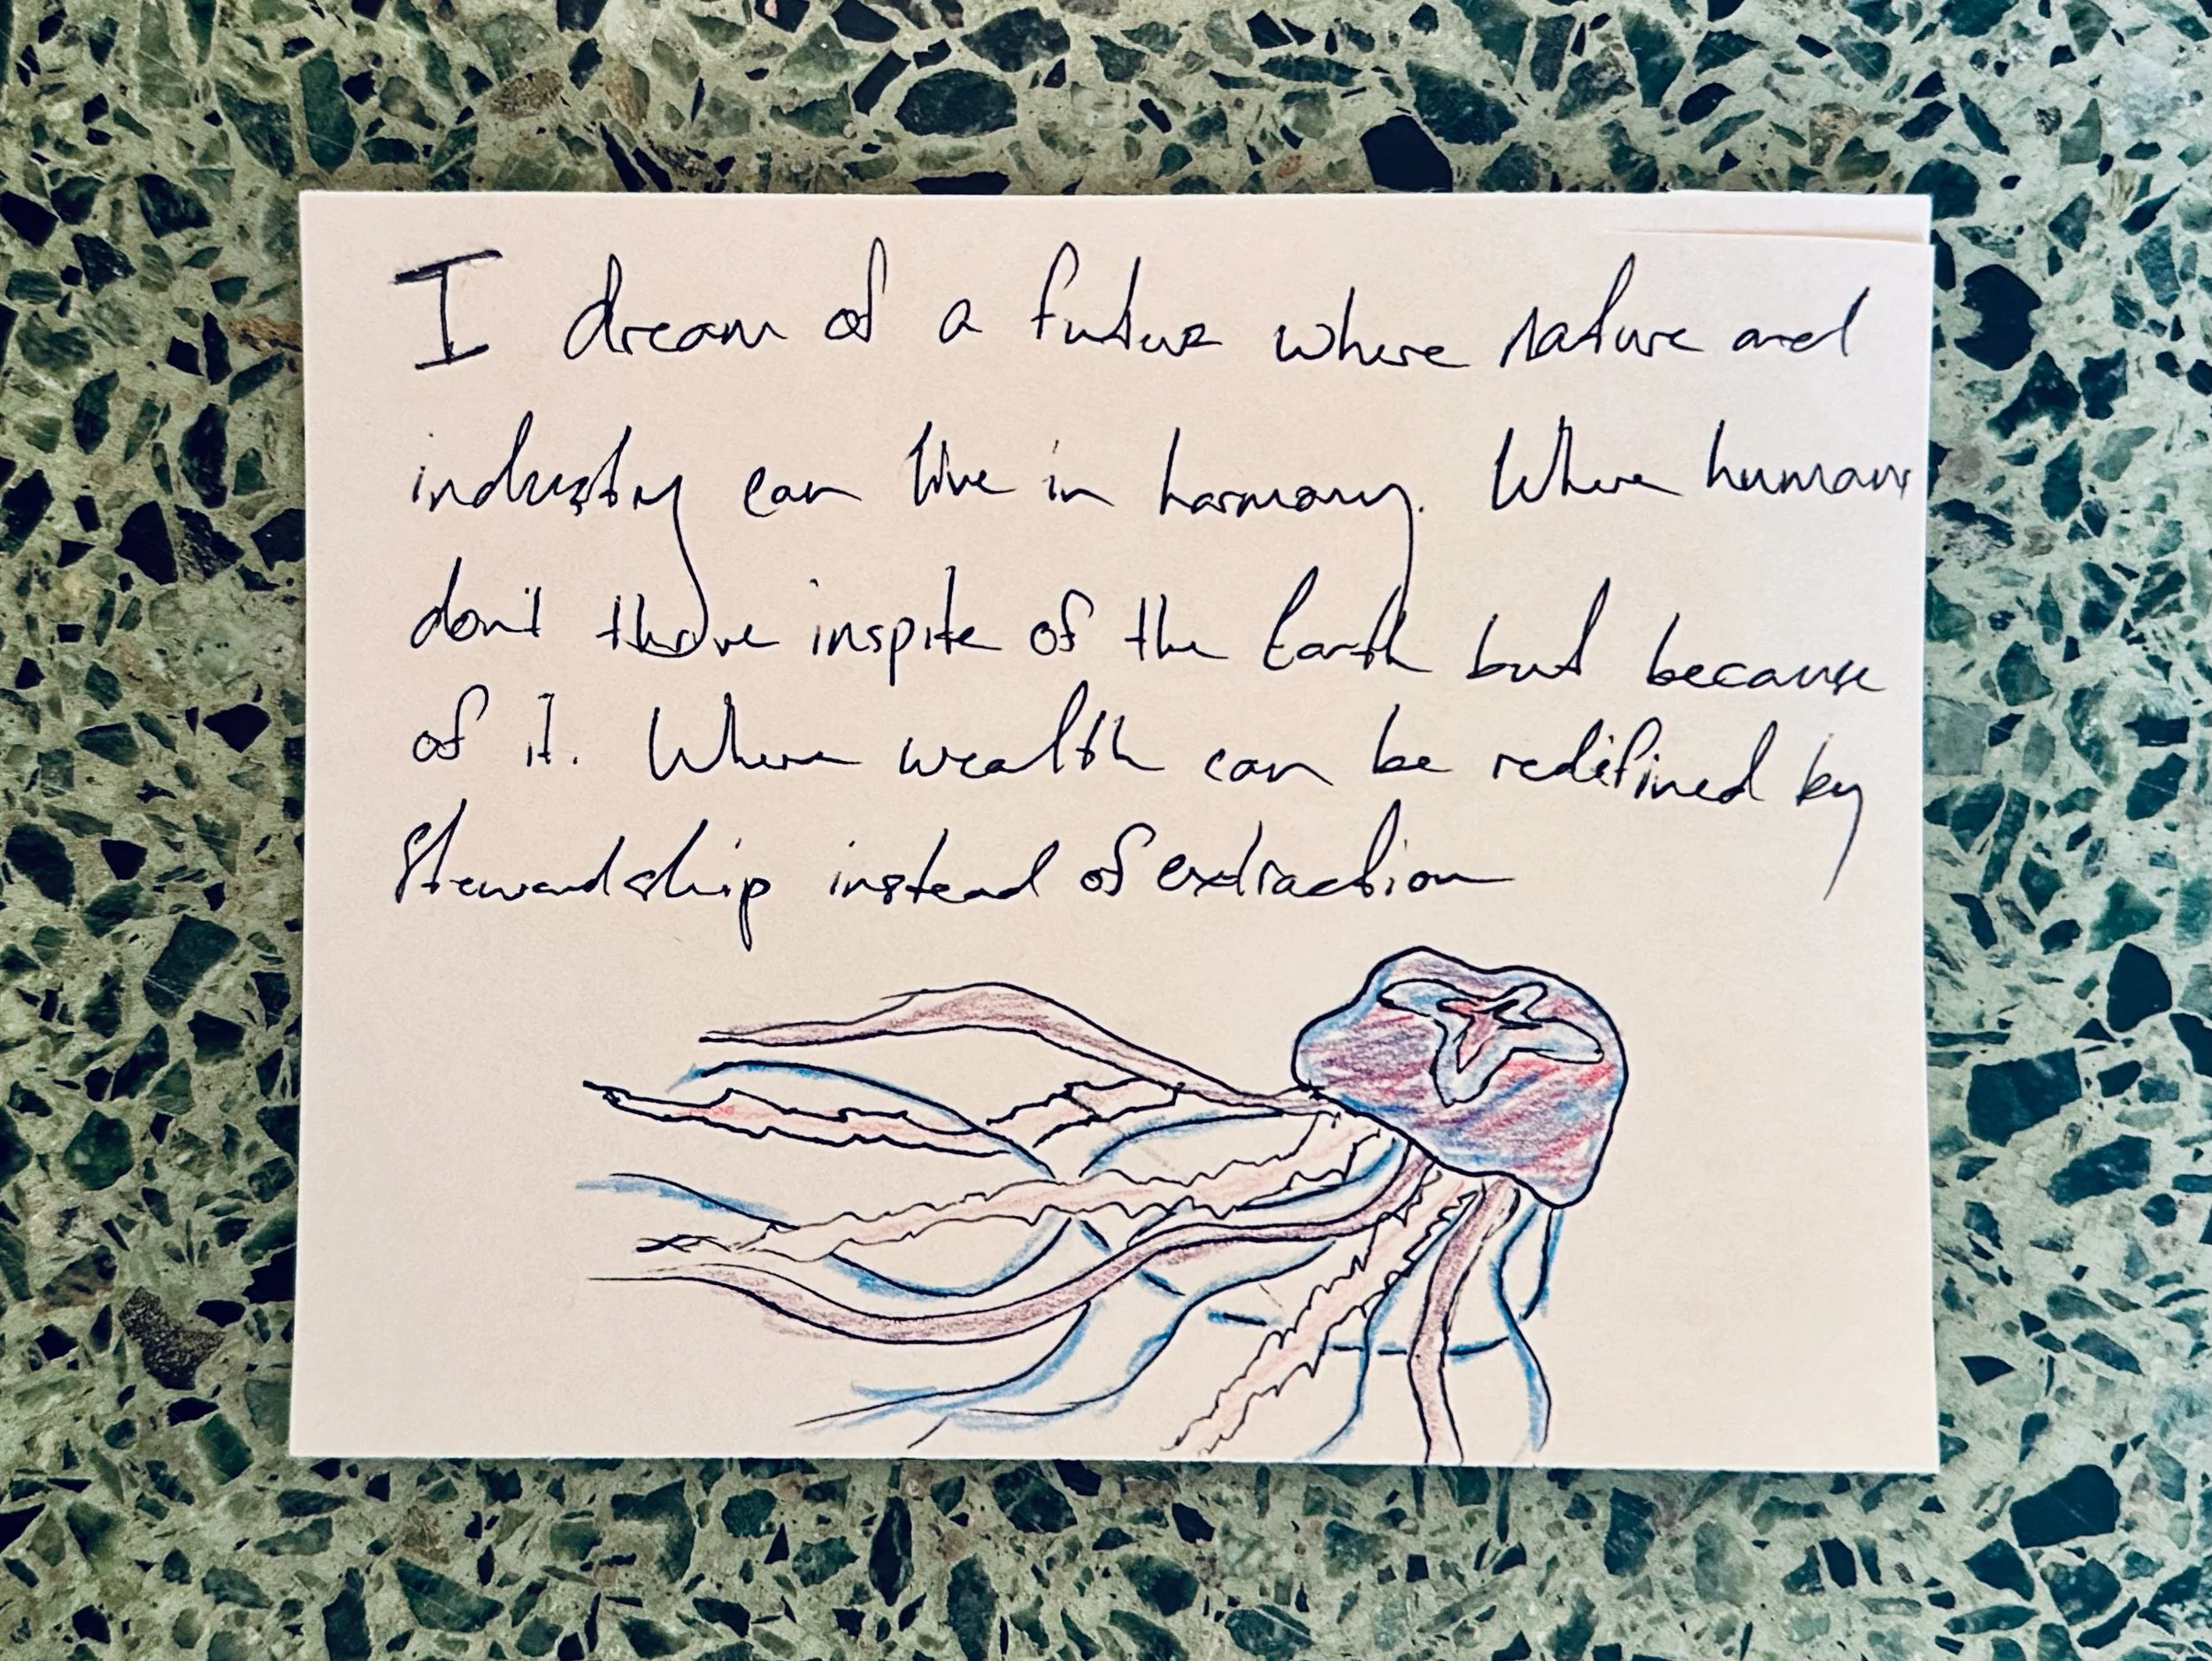 I dream of a future where nature and
industry can live in harmony. Where humans
don't thrive inspite of the Earth but because
of it. Where wealth can be redefined by
Stewardship instead of extraction